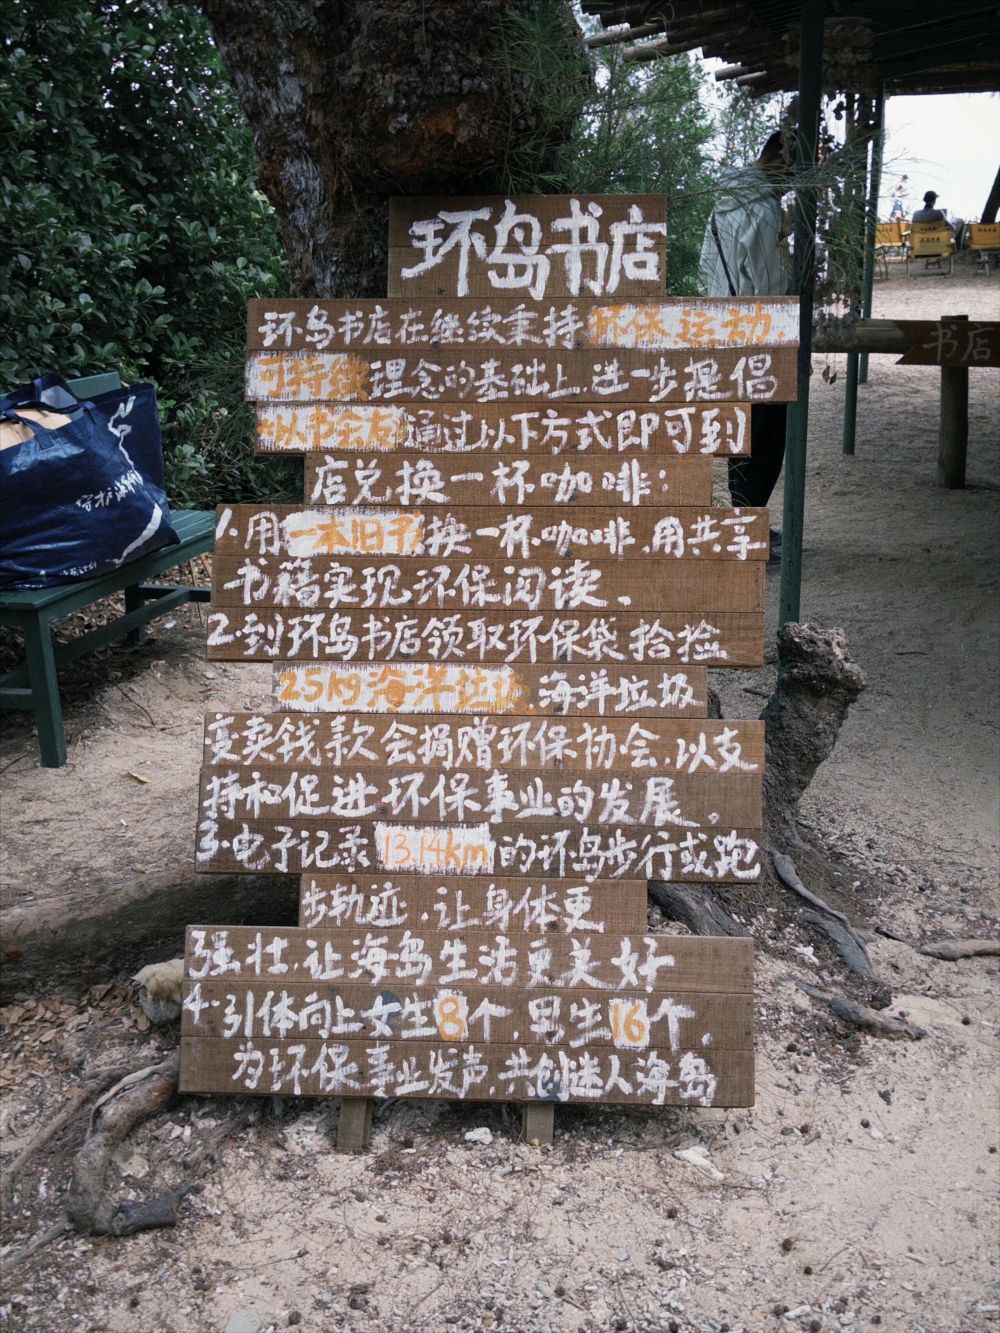 环岛书店
环岛书店在继续秉持环保运动.
可持续理念的基础上.进一步提倡
"以书会友"通过以下方式即可到
店兑换一杯咖啡:
1.用一本旧书换一杯咖啡.用共享
书籍实现环保阅读.
2.到环岛书店领取环保袋拾捡
2.5kg海洋垃圾.海洋垃圾
变卖钱款会捐赠环保协会.以支
持和促进环保事业的发展。
3.电子记录13.14km的环岛步行或跑
步轨迹.让身体更
强壮.让海岛生活更美好
4.引体向上女生8个.男生16个.
为环保事业发声.共创迷人海岛
书店
守护海